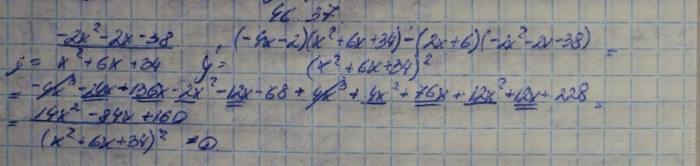 46.37.
y = (-2x²-2x-38)/(x²+6x+34) y' = ((-4x-2)(x²+6x+34)-(2x+6)(-2x²-2x-38))/(x²+6x+34)² =
= -4x³-24x+136x-2x²-12x-68+4x³+4x²+76x+12x²+12x+228 =
= (14x²-84x+160)/(x²+6x+34)² = 0